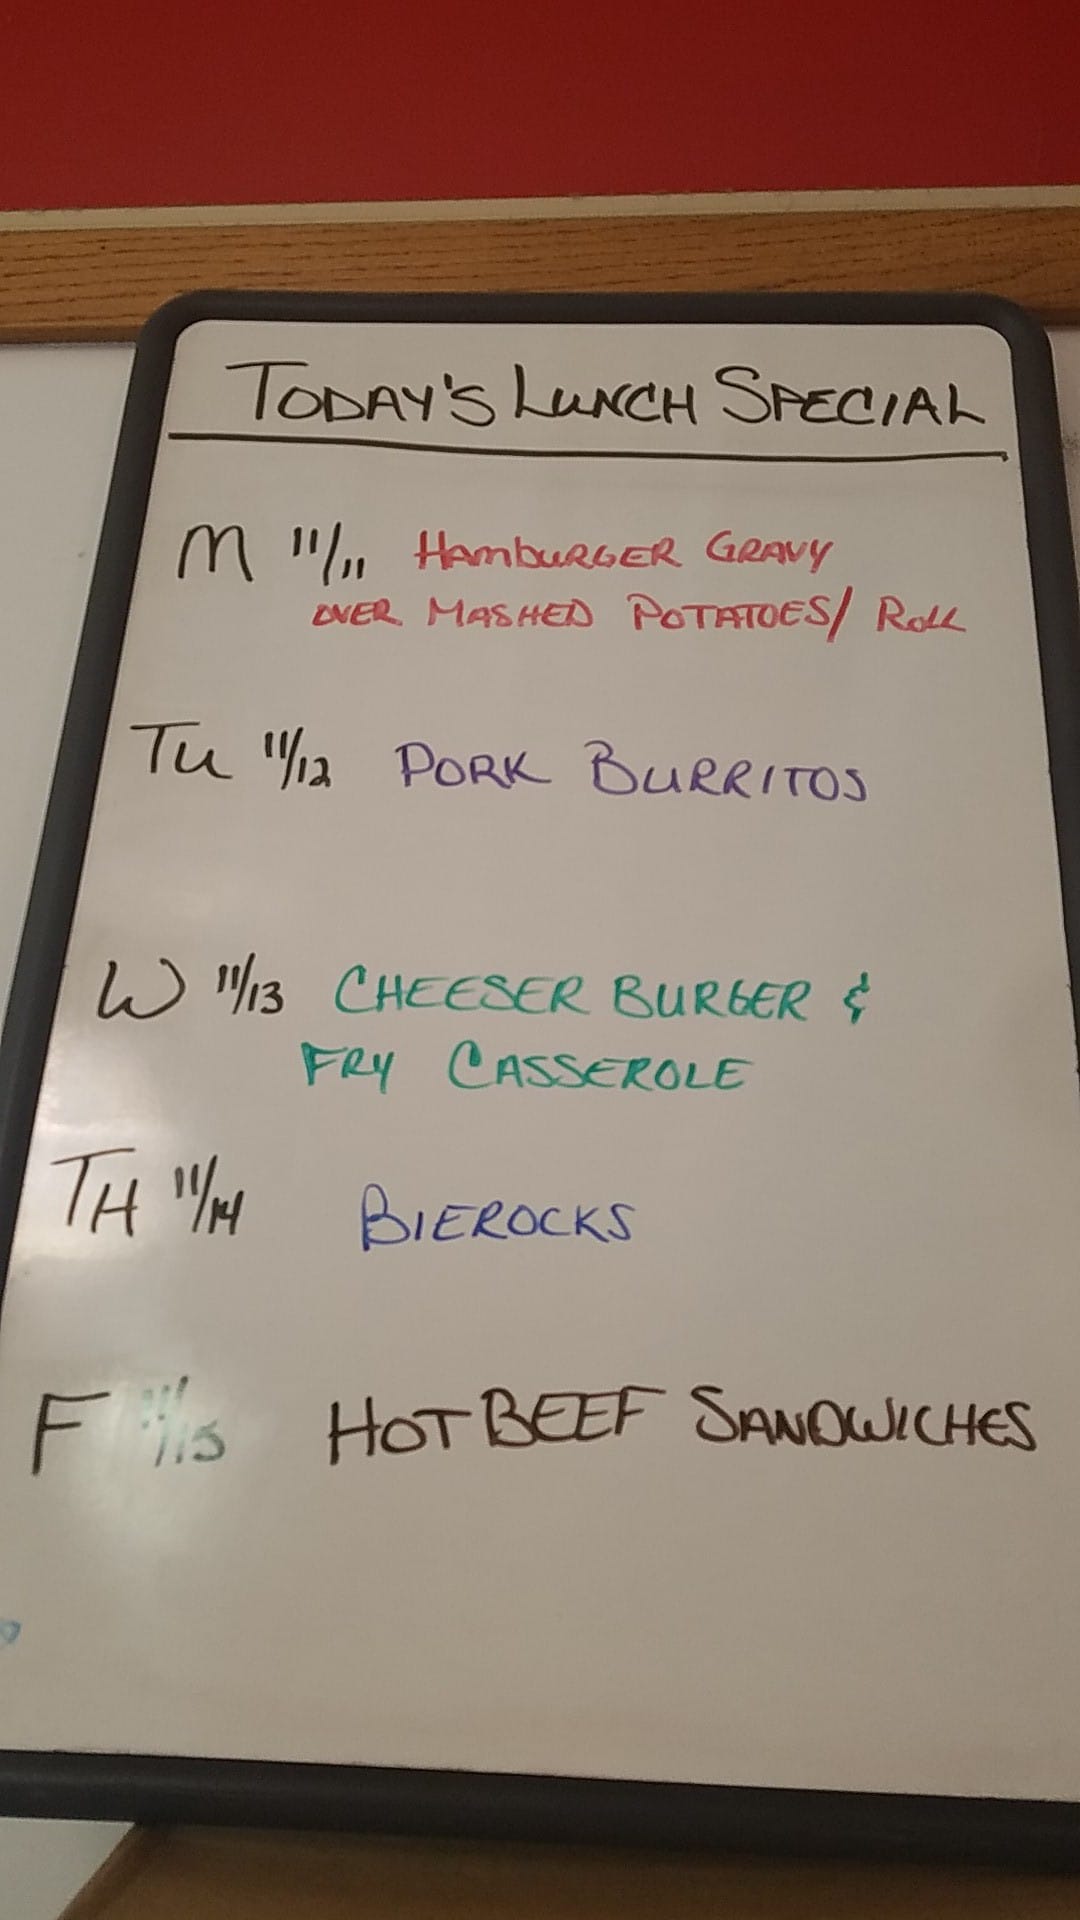 TODAY'S LUNCH SPECIAL
M 11/11 HAMBURGER GRAVY
OVER MASHED POTATOES/ ROLL
TU 11/12 PORK BURRITOS
W 11/13 CHEESER BURGER &
FRY CASSEROLE
TH 11/14 BIEROCKS
F 11/15 HOT BEEF SANDWICHES